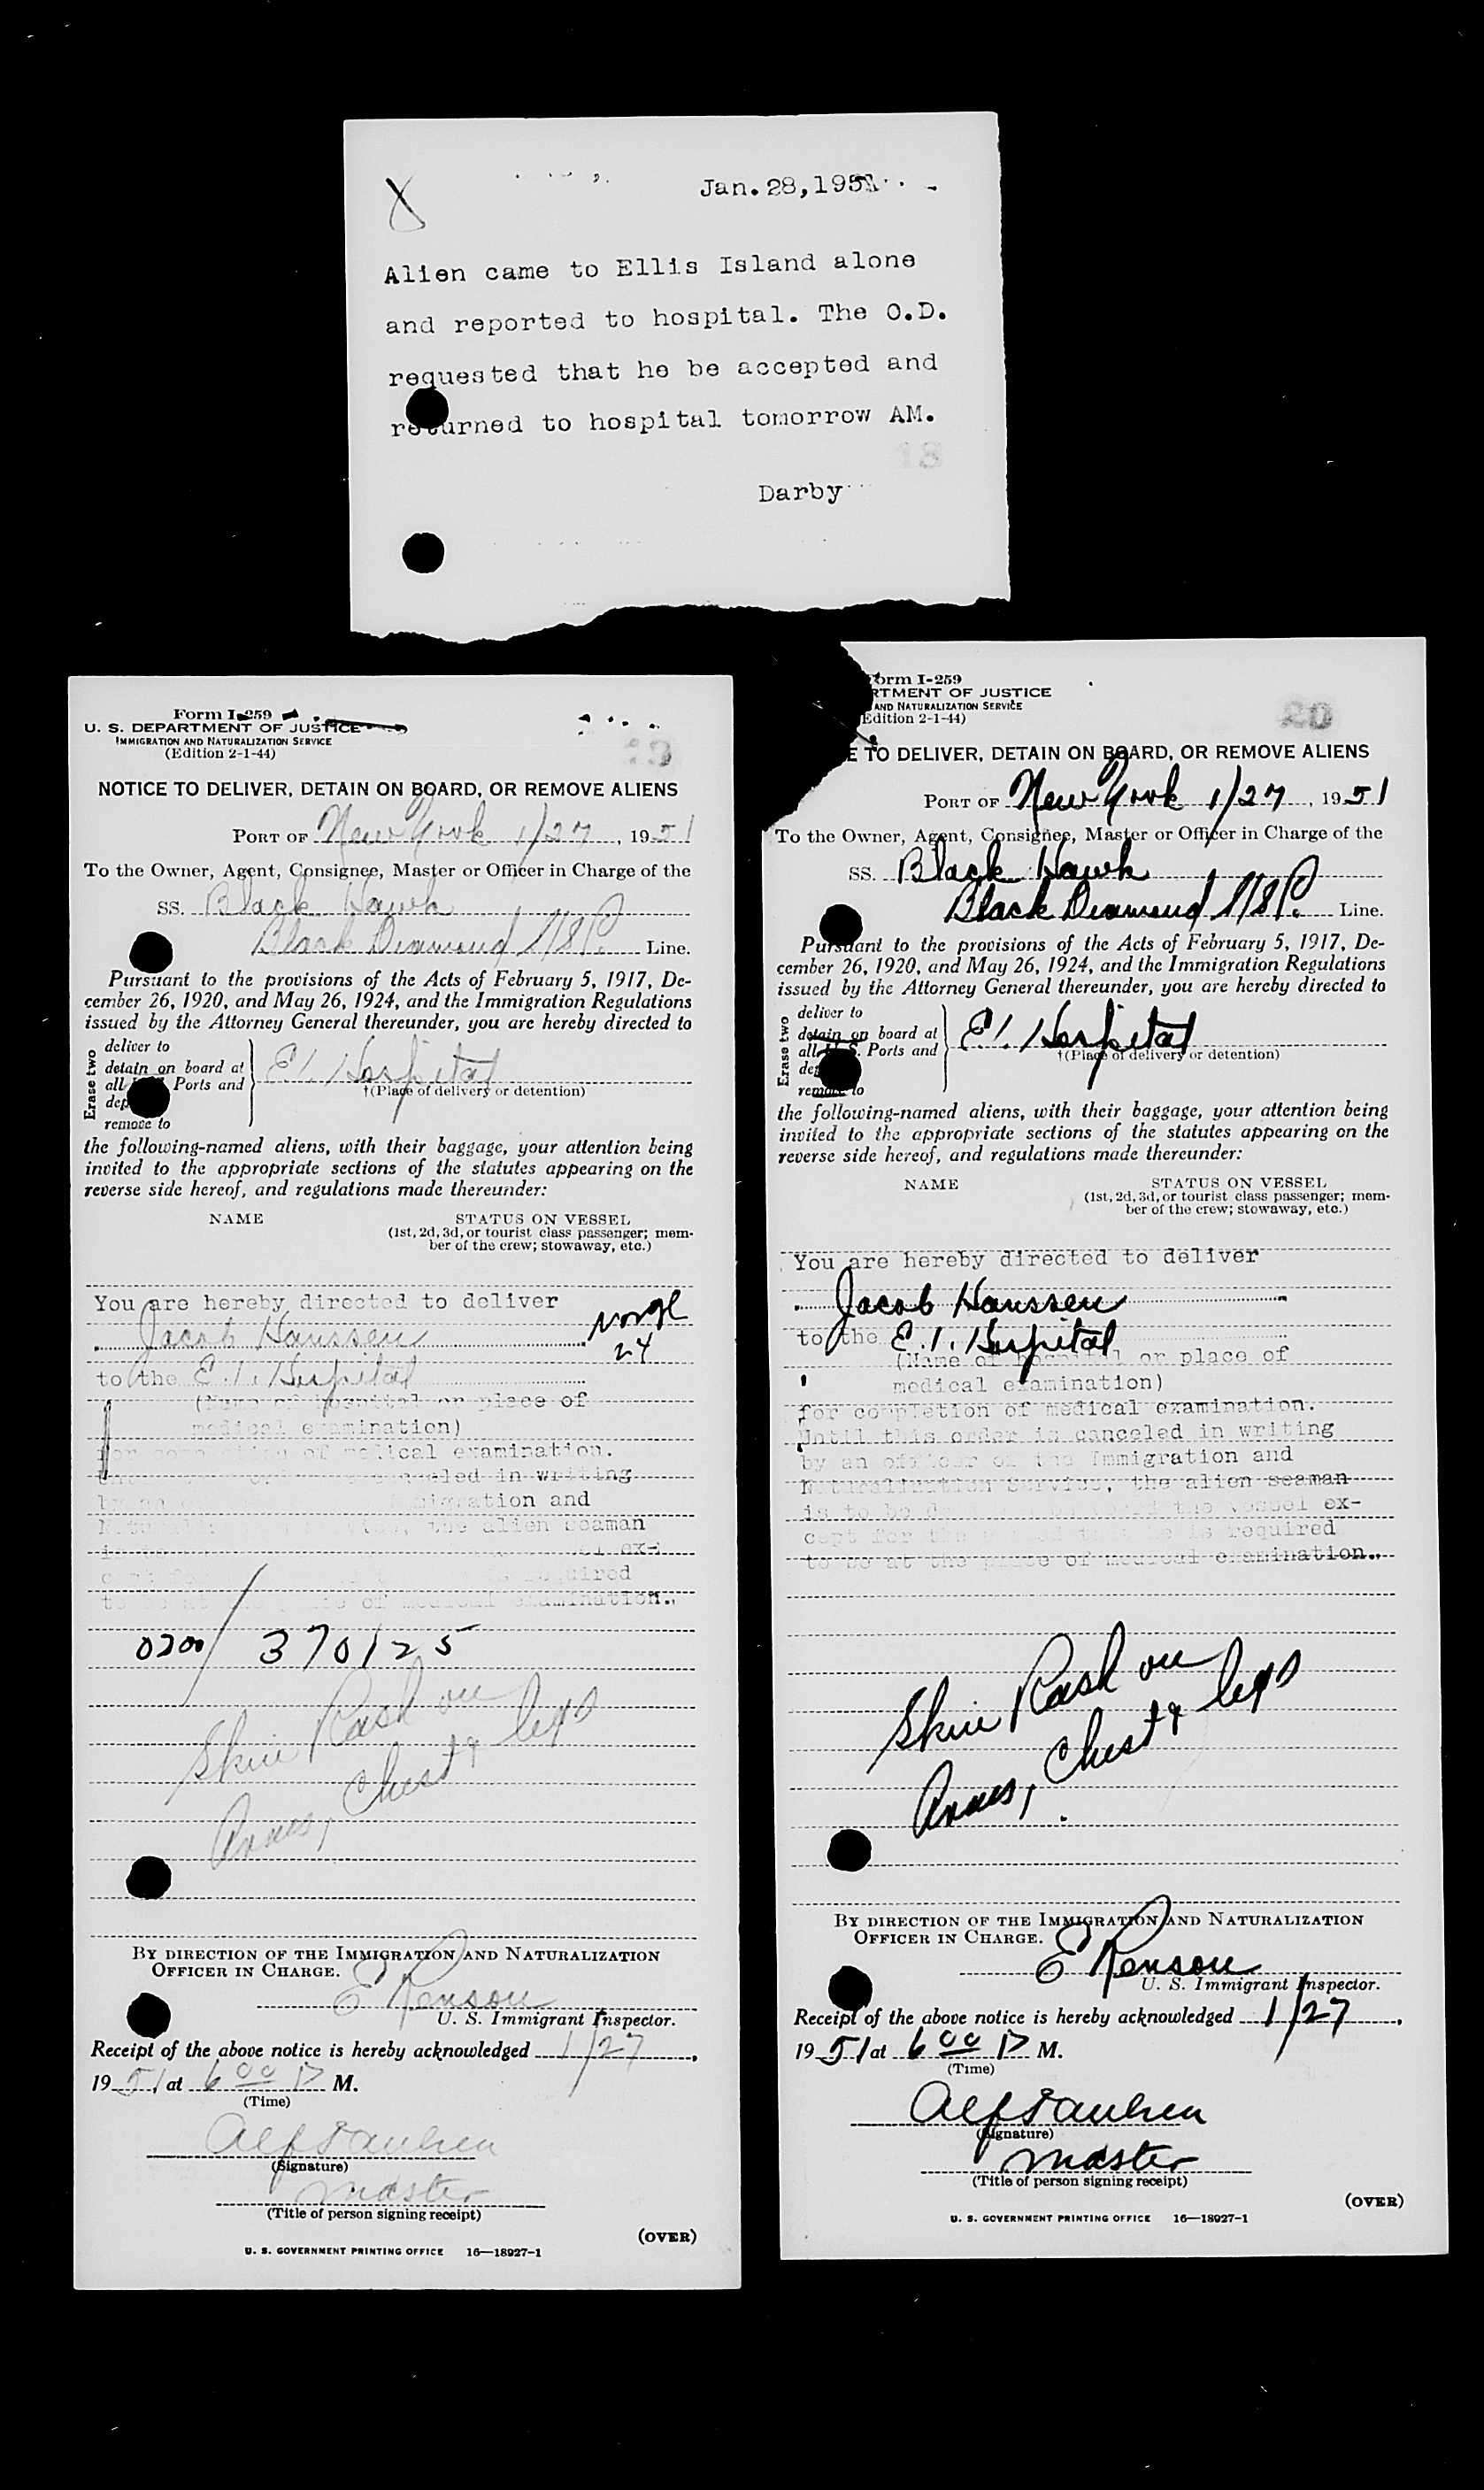 Jan.28,1951
Alien came to Ellis Island alone
and reported to hospital. The O.D.
requested that he be accepted and
returned to hospital tomorrow AM.
18
Darby
Form I-259
U. S. DEPARTMENT OF JUSTICE
IMMIGRATION AND NATURALIZATION SERVICE
(Edition 2-1-44)
NOTICE TO DELIVER, DETAIN ON BOARD, OR REMOVE ALIENS
PORT OF New York 1/27, 1951
To the Owner, Agent, Consignee, Master or Officer in Charge of the
SS. Black Hawk
Black Diamond Line.
Pursuant to the provisions of the Acts of February 5, 1917, De-
cember 26, 1920, and May 26, 1924, and the Immigration Regulations
issued by the Attorney General thereunder, you are hereby directed to
Erase two
deliver to
detain on board at
all Ports and
remove to
E.I. Hospital
†(Place of delivery or detention)
the following-named aliens, with their baggage, your attention being
invited to the appropriate sections of the statutes appearing on the
reverse side hereof, and regulations made thereunder:
NAME STATUS ON VESSEL
(1st, 2d, 3d, or tourist class passenger; mem-
ber of the crew; stowaway, etc.)
You are hereby directed to deliver
Jacob Hanssen Norge
24
to the E.I. Hospital
(Name of hospital or place of
medical examination)
for completion of medical examination.
canceled in writing
Immigration and
the alien seaman
ex-
required
of medical examination.
0200/ 370125
Skin Rash on
Arms, Chest & legs
BY DIRECTION OF THE IMMIGRATION AND NATURALIZATION
OFFICER IN CHARGE.
E Renson
U. S. Immigrant Inspector.
Receipt of the above notice is hereby acknowledged 1/27,
1951 at 6 00 P M.
(Time)
Alf Paulsen
(Signature)
Master
(Title of person signing receipt)
(OVER)
U. S. GOVERNMENT PRINTING OFFICE 16—18927-1
Form I-259
RTMENT OF JUSTICE
AND NATURALIZATION SERVICE
Edition 2-1-44)
20
E TO DELIVER, DETAIN ON BOARD, OR REMOVE ALIENS
PORT OF New York 1/27, 1951
To the Owner, Agent, Consignee, Master or Officer in Charge of the
SS. Black Hawk
Black Diamond Line.
Pursuant to the provisions of the Acts of February 5, 1917, De-
cember 26, 1920, and May 26, 1924, and the Immigration Regulations
issued by the Attorney General thereunder, you are hereby directed to
Erase two
deliver to
detain on board at
all U. S. Ports and
remove to
E.I. Hospital
†(Place of delivery or detention)
the following-named aliens, with their baggage, your attention being
invited to the appropriate sections of the statutes appearing on the
reverse side hereof, and regulations made thereunder:
NAME STATUS ON VESSEL
(1st, 2d, 3d, or tourist class passenger; mem-
ber of the crew; stowaway, etc.)
You are hereby directed to deliver
Jacob Hanssen
to the E.I. Hospital
(Name of hospital or place of
medical examination)
for completion of medical examination.
Until this order is canceled in writing
by an officer of the Immigration and
Naturalization Service, the alien seaman
is to be the vessel ex-
cept for the period that he is required
to be at the place of medical examination.
Skin Rash on
Arms, Chest & legs
BY DIRECTION OF THE IMMIGRATION AND NATURALIZATION
OFFICER IN CHARGE.
E Renson
U. S. Immigrant Inspector.
Receipt of the above notice is hereby acknowledged 1/27,
1951 at 6 00 P M.
(Time)
Alf Paulsen
(Signature)
Master
(Title of person signing receipt)
(OVER)
U. S. GOVERNMENT PRINTING OFFICE 16—18927-1